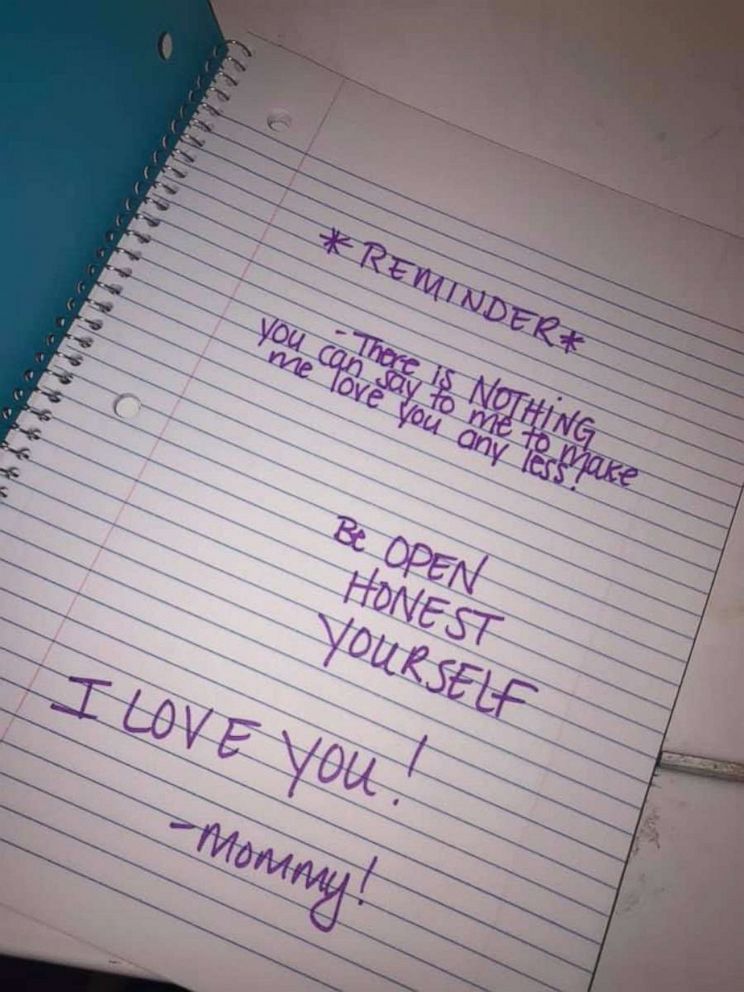 *REMINDER*
-There is NOTHING
you can say to me to make
me love you any less!
Be OPEN
HONEST
YOURSELF
I LOVE YOU!
-Mommy!